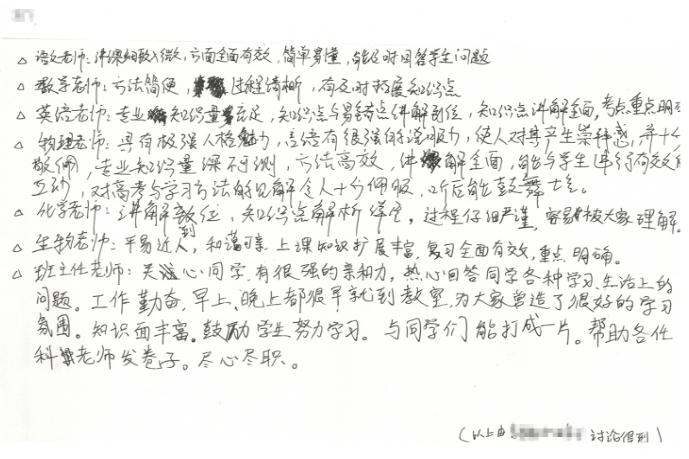 △ 语文老师：讲课细致入微，方面全面有效，简单易懂，能及时回答学生问题
△ 数学老师：方法简便，过程清晰，有及时拓展知识点
△ 英语老师：专业知识量充足，知识点与易错点讲解到位，知识点讲解全面，考点重点明确
△ 物理老师：具有极强人格魅力，言语有很强的吸引力，使人对其产生崇拜感，并十分
敬佩，专业知识量深不可测，方法高效，讲解全面，能与学生进行有效的
互动，对高考与学习方法的见解令人十分佩服，听后能鼓舞士气。
△ 化学老师：讲解到位，知识点解析详尽，过程仔细严谨，容易被大家理解。
△ 生物老师：平易近人，和蔼可亲，上课知识扩展丰富，复习全面有效，重点明确。
△ 班主任老师：关心同学，有很强的亲和力，热心回答同学各种学习、生活上的
问题。工作勤奋，早上、晚上都很早就到教室，为大家营造了很好的学习
氛围。知识面丰富。鼓励学生努力学习。与同学们能打成一片。帮助各任
科老师发卷子。尽心尽职。
（以上由 讨论得到）